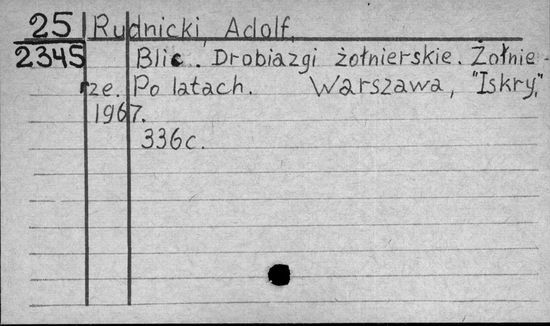 25 Rudnicki, Adolf.
2345 Blic. Drobiazgi żołnierskie. Żołnie-
rze. Po latach. Warszawa, "Iskry,"
1967.
336c.